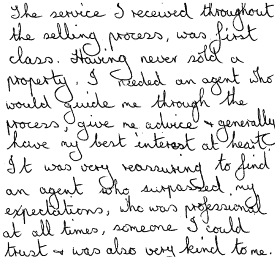 The service I received throughout
the selling process, was first
class. Having never sold a
property, I needed an agent who
would guide me through the
process, give me advice & generally
have my best interest at heart.
It was very reassuring to find
an agent who surpassed my
expectations, who was professional
at all times, someone I could
trust & was also very kind to me.